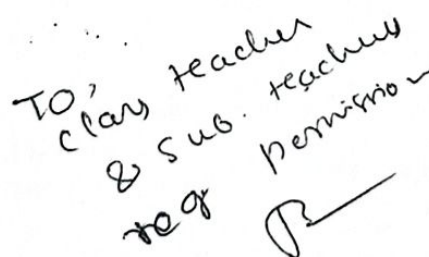 TO,
class teacher
& sub. teachers
reg permission